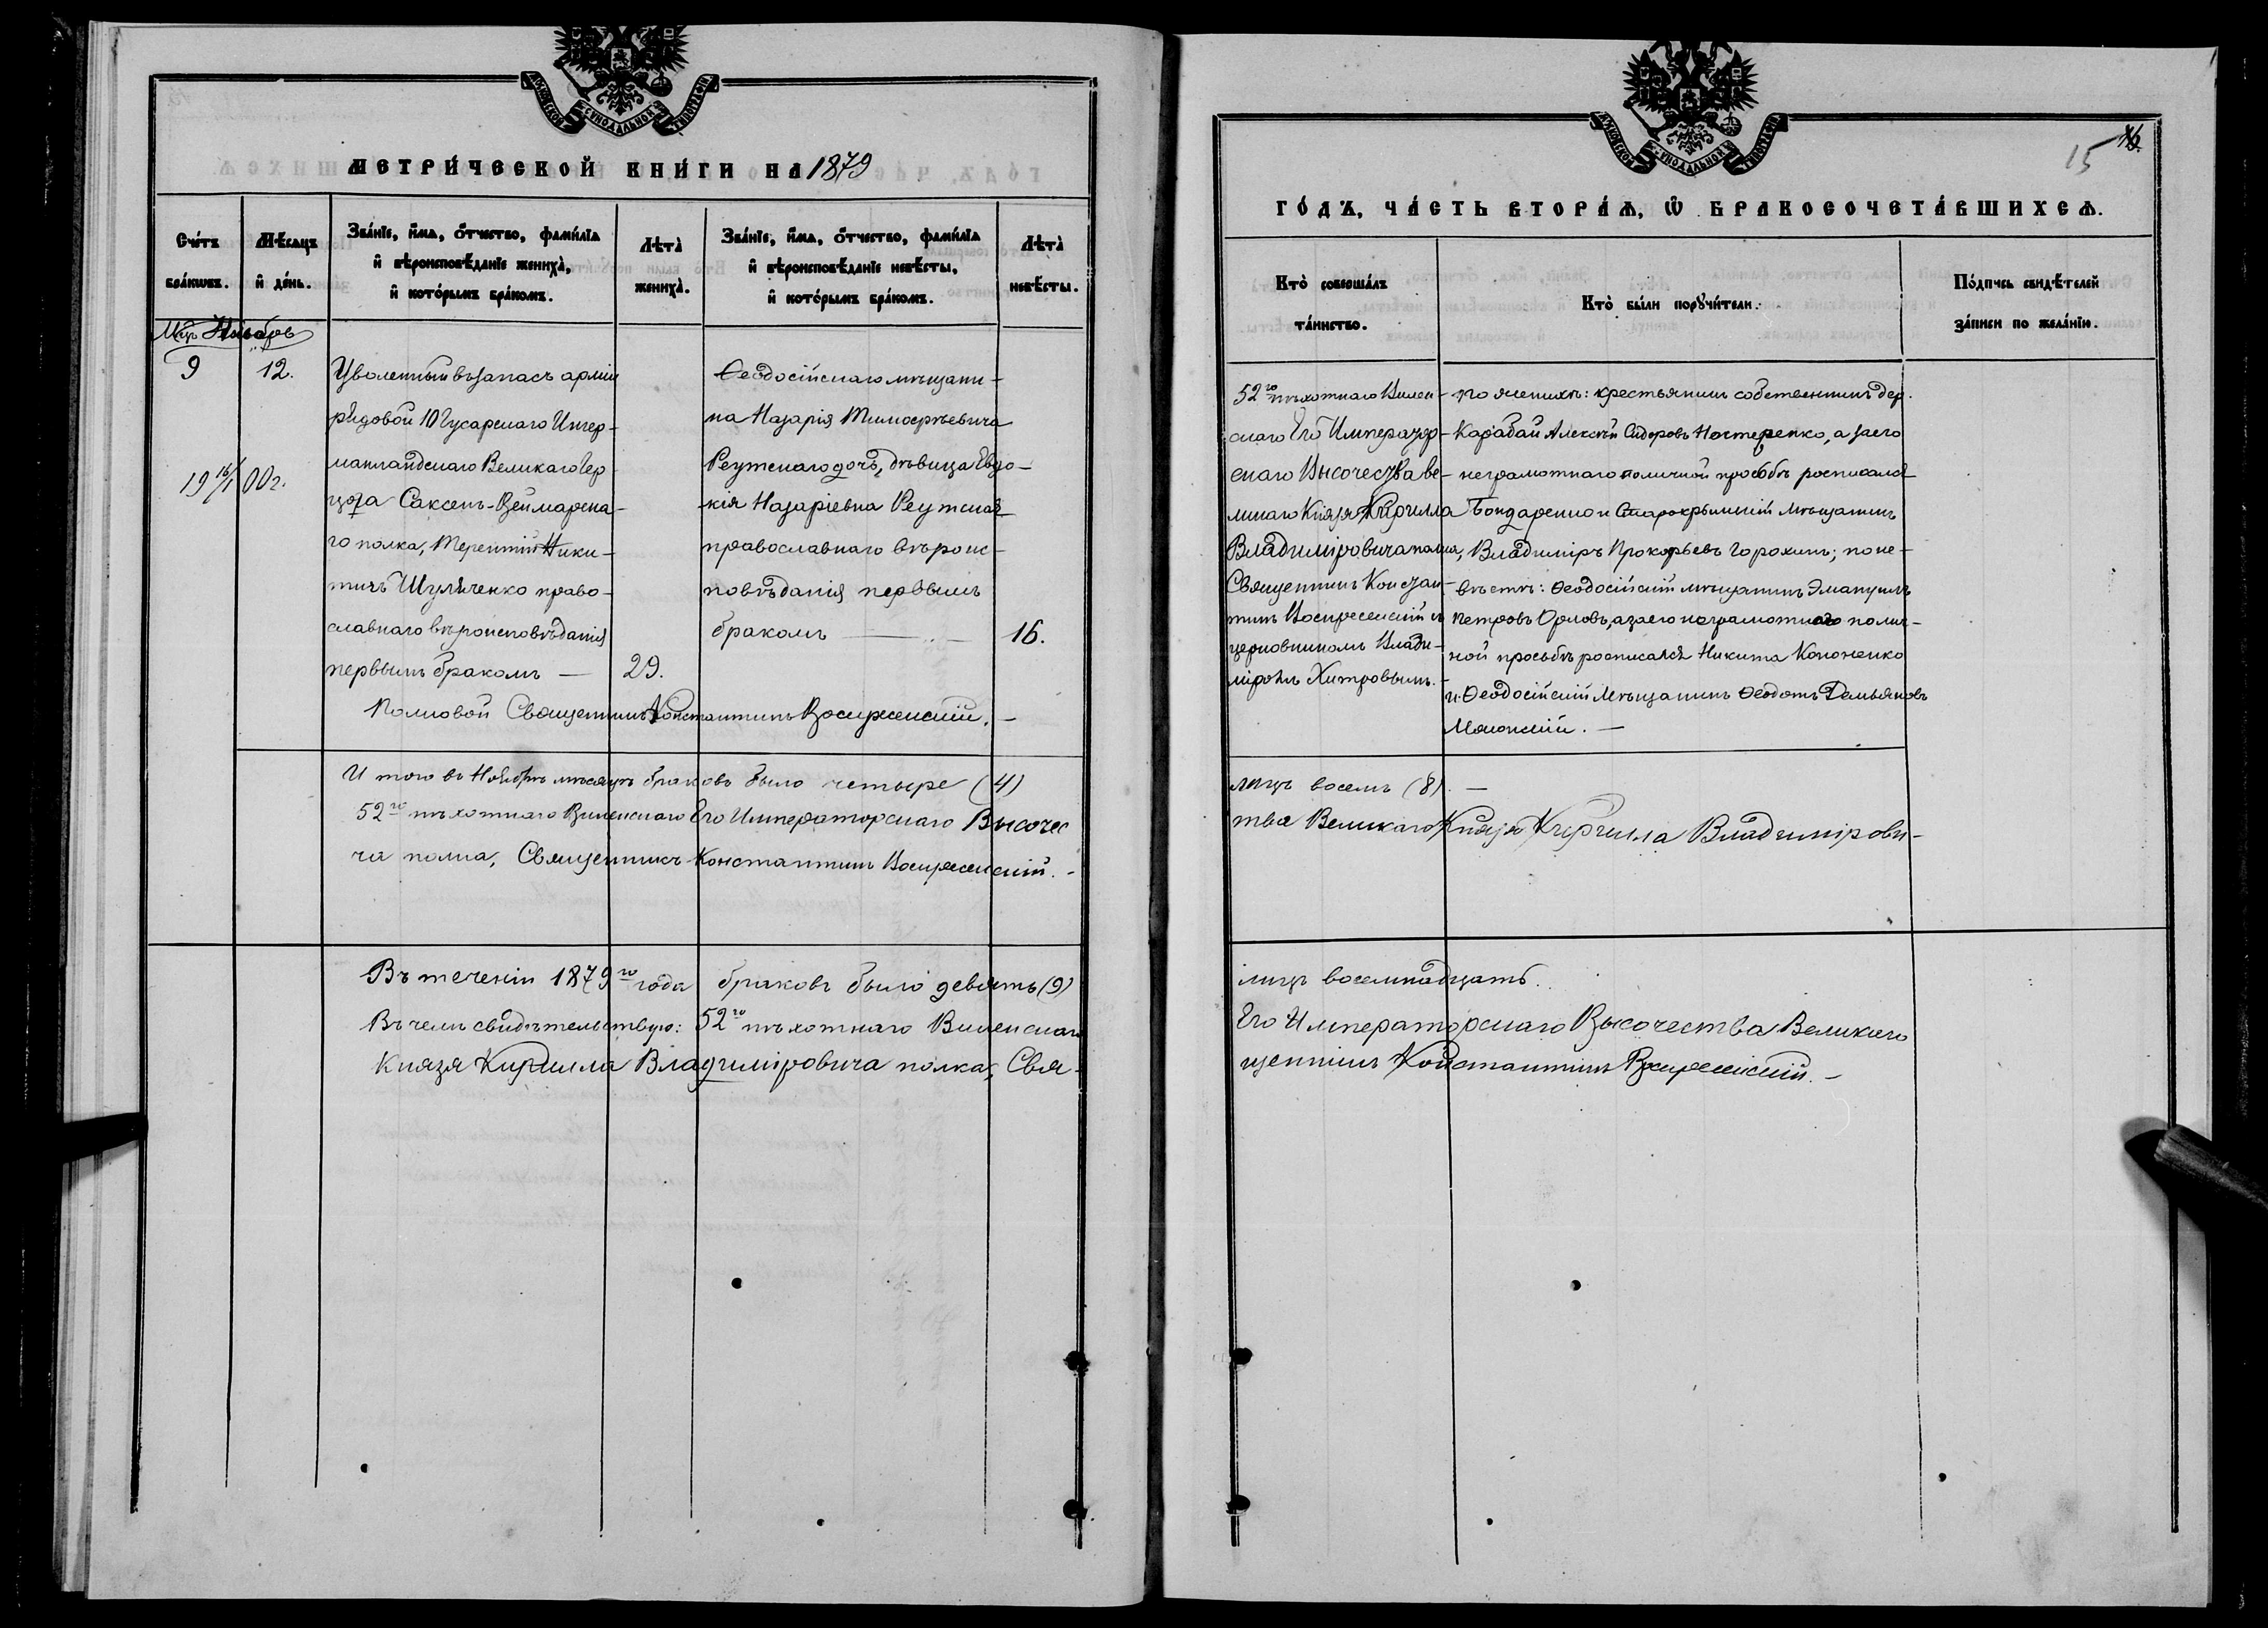 МЕТРИ́ЧЕСКОЙ КНИ́ГИ НА 1879
Сче́тъ бра́ковъ.
Мѣ́сяцъ и де́нь.
Зва́нїе, и́мѧ, ѻ҆́тчество, фами́лїѧ
и҆ вѣроисповѣ́данїе жениха̀,
и҆ кото́рымъ бра́комъ.
Лѣта̀ жениха̀.
Зва́нїе, и́мѧ, ѻ҆́тчество, фами́лїѧ
и҆ вѣроисповѣ́данїе невѣ́сты,
и҆ кото́рымъ бра́комъ.
Лѣта̀ невѣ́сты.
Мцъ Ноябрь
9
12.
19 16/1 00 г.
Уволенный въ запасъ арміи
рядовой 10 Гусарскаго Ингер-
манландскаго Великаго Гер-
цога Саксенъ-Веймарска-
го полка, Терентій Ники-
тичъ Шуляченко право-
славнаго вѣроисповѣданія
первымъ бракомъ —
29.
Ѳеодосійскаго мѣщани-
на Назарія Тимоѳѣевича
Реутскаго дочь, дѣвица Евдо-
кія Назаріевна Реутская
православнаго вѣроис-
повѣданія первымъ
бракомъ —
16.
Полковой Священникъ Константинъ Воскресенскій. —
И того въ Ноябрѣ мѣсяцѣ браковъ было четыре (4)
52го пѣхотнаго Виленскаго Его Императорскаго Высочес
ча полка, Священникъ Константинъ Воскресенскій. -
Въ теченіи 1879го года браковъ было девять (9)
Въ чемъ свидѣтельствую: 52го пѣхотнаго Виленскаго
Князя Кирилла Владиміровича полка, Свя-
15
ГО́ДЪ, ЧА́СТЬ ВТОРА́Ѧ, Ѽ БРАКОСОЧЕТА́ВШИХСѦ.
Кто̀ соверша́лъ
та́инство.
Кто̀ бы́ли порꙋчи́тели.
По́дпись свидѣ́телей
за́писи по жела́нїю.
52го пѣхотнаго Вилен-
скаго Его Император-
скаго Высочества Ве-
ликаго Князя Кирилла
Владиміровича полка,
Священникъ Констан-
тинъ Воскресенскій съ
церковникомъ Влади-
міромъ Хитровымъ. -
По женихѣ: крестьянинъ собственникъ дер.
Карабай Алексѣй Сидоровъ Нестеренко, а за его
неграмотнаго по личной просьбѣ росписался
Бондаренко и Старокрымскій мѣщанинъ
Владиміръ Прокофьевъ Горохинъ; по не-
вѣстѣ: Ѳеодосійскій мѣщанинъ Эмануилъ
Петровъ Орловъ, а за его неграмотнаго по лич-
ной просьбѣ росписался Никита Кононенко
и Ѳеодосійскій мѣщанинъ Ѳеодотъ Демьяновъ
лицъ восемь (8). —
тва Великаго Князя Кирилла Владимірови-
лицъ восемнадцать.
Его Императорскаго Высочества Великаго
щенникъ Константинъ Воскресенскій. —